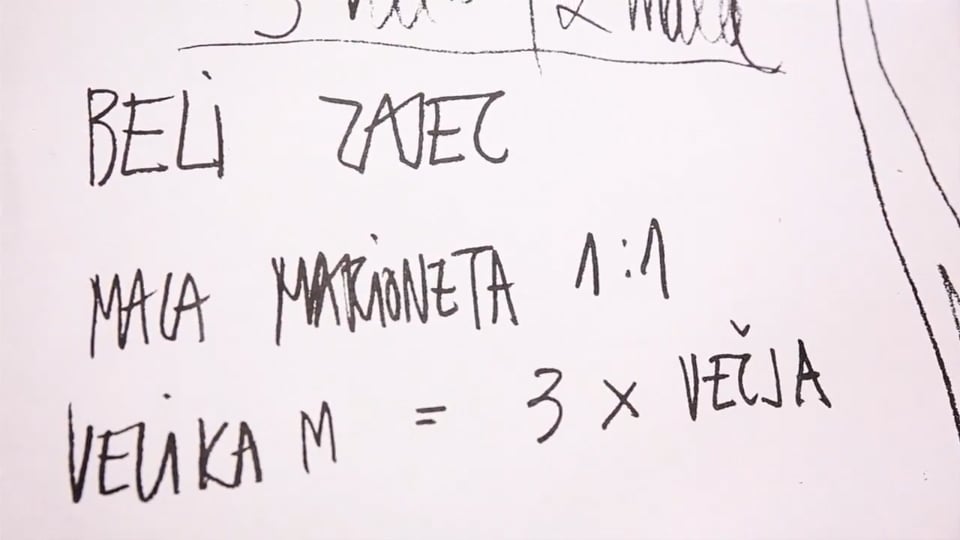 BELI ZAJEC
MALA MARIONETA 1:1
VELIKA M = 3 X VEČJA